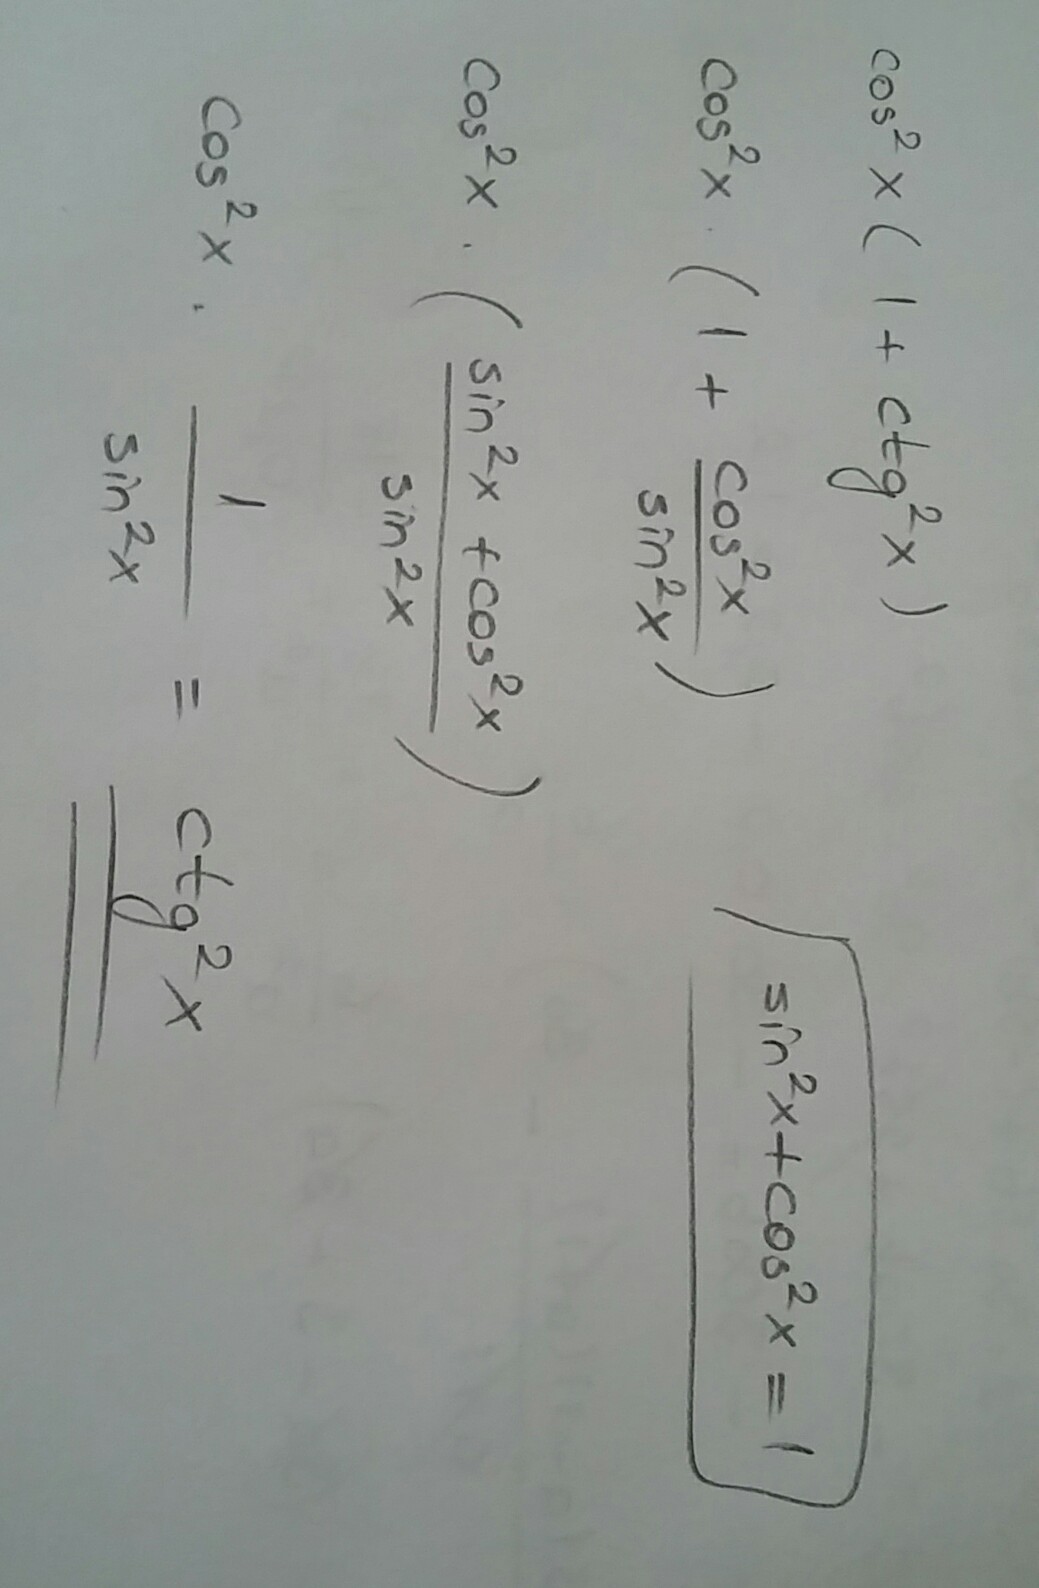 cos²x(1 + ctg²x)
cos²x · (1 + cos²x / sin²x)
sin²x + cos²x = 1
cos²x · (sin²x + cos²x / sin²x)
cos²x · 1 / sin²x = ctg²x